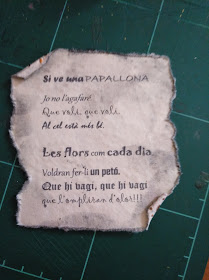 Si ve una PAPALLONA
Jo no l'agafaré
Que vali, que vali.
Al cel està més bé.
Les flors com cada dia
Voldran fer-li un petó.
Que hi vagi, que hi vagi
que l'ompliran d'olor!!!